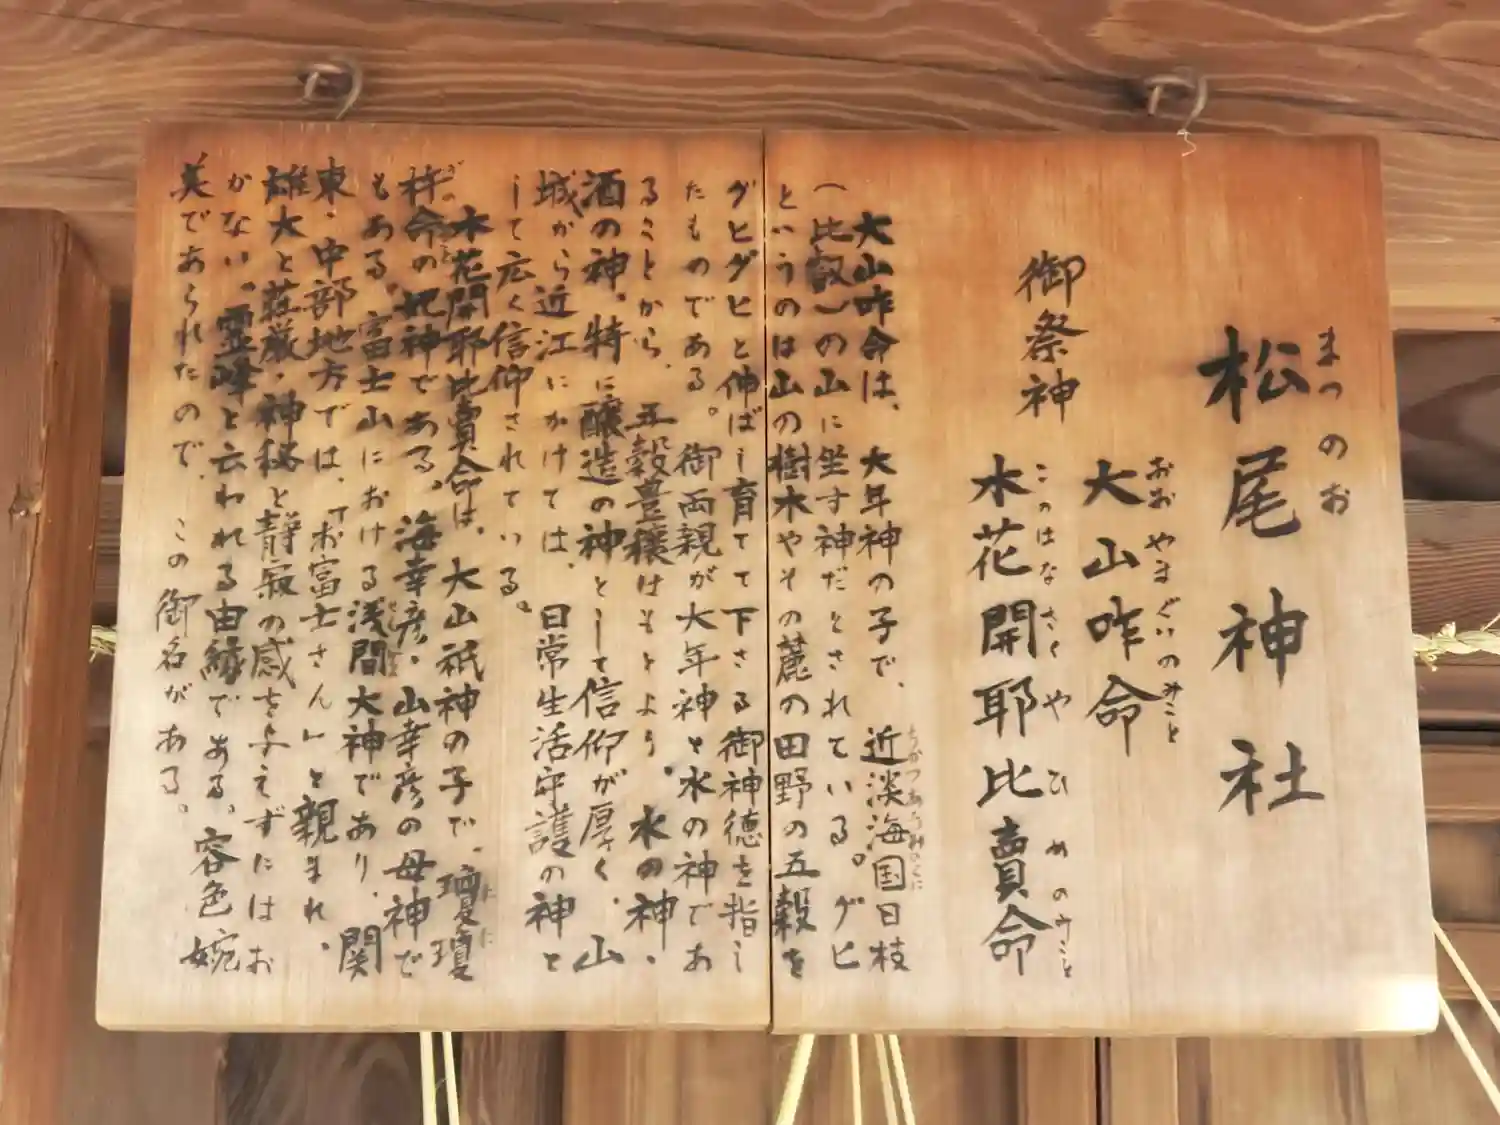 まつのお
松尾神社
御祭神
おおやまぐいのみこと
大山咋命
このはなさくやひめのみこと
木花開耶比賣命
大山咋命は、大年神の子で、近淡海国日枝
ちかつあふみのくに
(比叡)の山に坐す神だとされている。グヒ
というのは山の樹木やその麓の田野の五穀を
グヒグヒと伸ばし育てて下さる御神徳を指し
たものである。御両親が大年神と水の神であ
ることから、五穀豊穣はもとより、水の神、
酒の神、特に醸造の神として信仰が厚く、山
城から近江にかけては、日常生活守護の神と
して広く信仰されている。
木花開耶比賣命は、大山祇神の子で、瓊瓊
ににぎのみこと
杵命の妃神である。海幸彦・山幸彦の母神で
もある。富士山における浅間大神であり、関
東・中部地方では、「お富士さん」と親まれ、
雄大と荘厳・神秘と静寂の感を与えずにはお
かない、霊峰と云われる由縁である。容色婉
美であられたので、この御名がある。